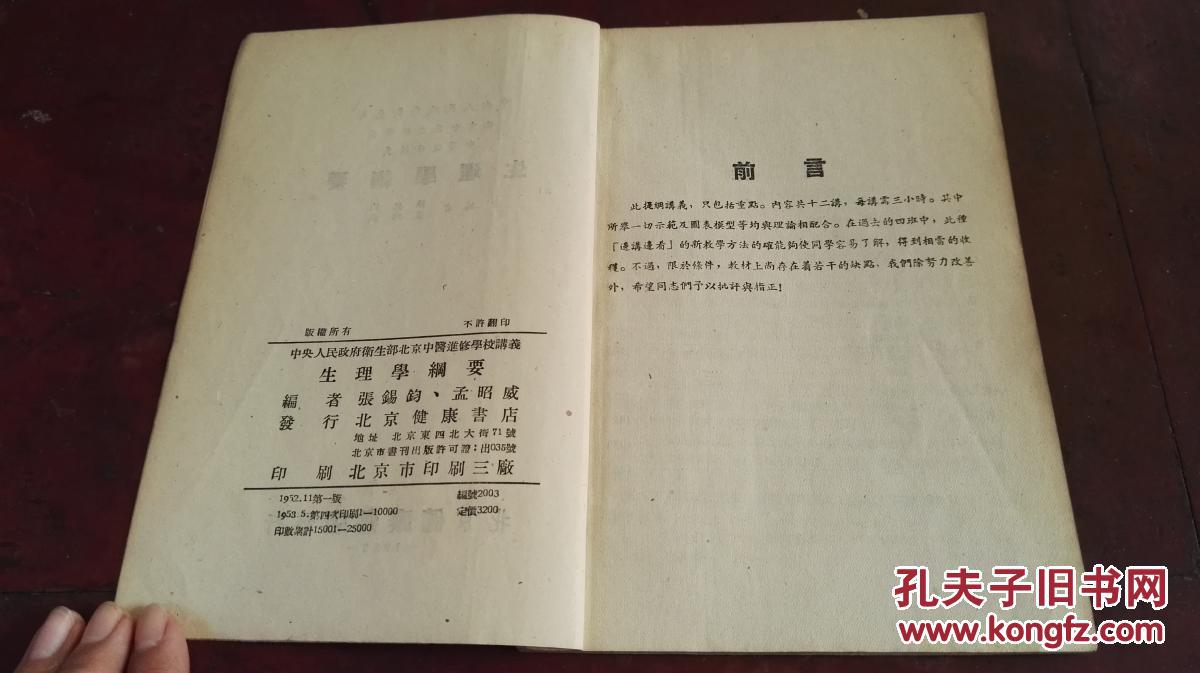 版權所有 不許翻印
中央人民政府衛生部北京中醫進修學校講義
生理學綱要
編者 張錫鈞、孟昭威
發行 北京健康書店
地址 北京東四北大街71號
北京市書刊出版許可證：出035號
印刷 北京市印刷三廠
1952.11第一版 編號2003
1953.5.第四次印刷1—10000 定價3200
印數累計15001—25000
前言
此提綱講義，只包括重點。內容共十二講，每講需三小時。其中
所舉一切示範及圖表模型等均與理論相配合。在過去的四班中，此種
「邊講邊看」的新教學方法的確能夠使同學容易了解，得到相當的收
穫。不過，限於條件，教材上尚存在着若干的缺點，我們除努力改善
外，希望同志們予以批評與指正！
孔夫子旧书网
www.kongfz.com